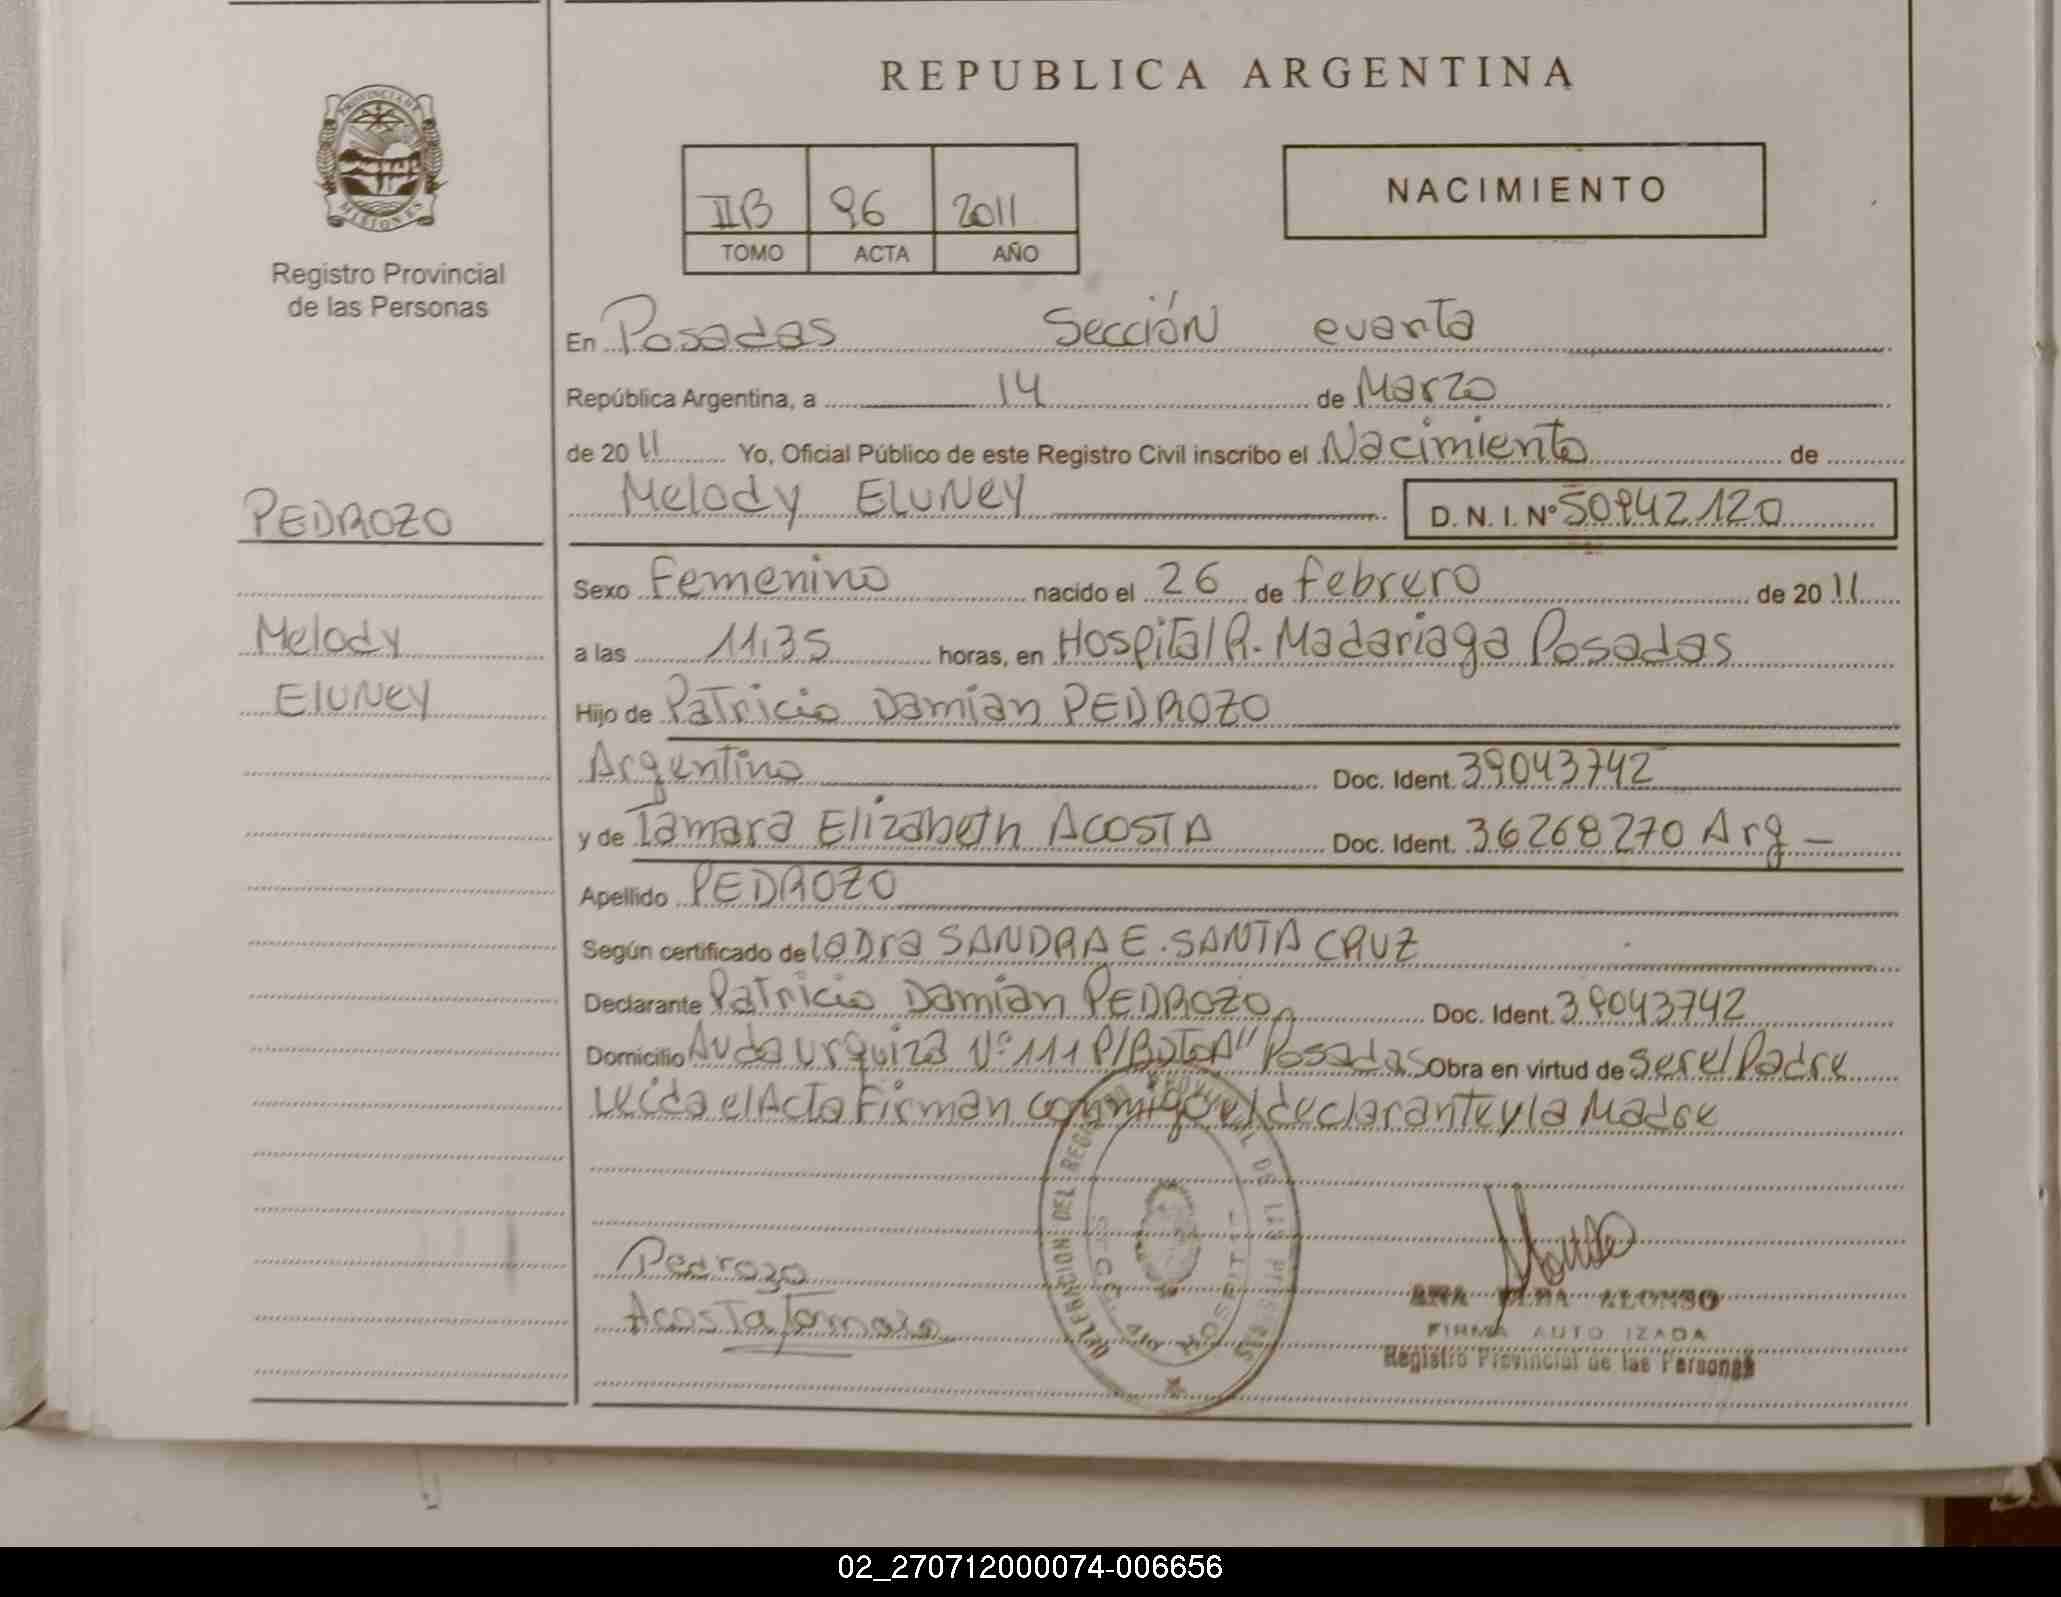 REPUBLICA ARGENTINA
PROVINCIA DE
MISIONES
Registro Provincial
de las Personas
IIB 96 2011
TOMO ACTA AÑO
NACIMIENTO
En Posadas Sección cuarta
República Argentina, a 14 de Marzo
de 2011 Yo, Oficial Público de este Registro Civil inscribo el Nacimiento de
Melody Eluney D. N. I. Nº 50942120
PEDROZO
Melody
Eluney
Sexo Femenino nacido el 26 de febrero de 2011
a las 11,35 horas, en Hospital R. Madariaga Posadas
Hijo de Patricio Damian PEDROZO
Argentino Doc. Ident. 39043742
y de Tamara Elizabeth ACOSTA Doc. Ident. 36268270 Arg
Apellido PEDROZO
Según certificado de la Dra SANDRA E. SANTA CRUZ
Declarante Patricio Damian PEDROZO Doc. Ident. 39043742
Domicilio Avda Urquiza Nº 111 Posadas Obra en virtud de ser el Padre
Leida el Acta Firman conmigo el declarante y la Madre
Pedrozo
Acosta Tamara
DELEGACION DEL REGISTRO PROVINCIAL DE LAS PERSONAS
ANA ELBA ALONSO
FIRMA AUTO IZADA
Registro Provincial de las Personas
02_270712000074-006656